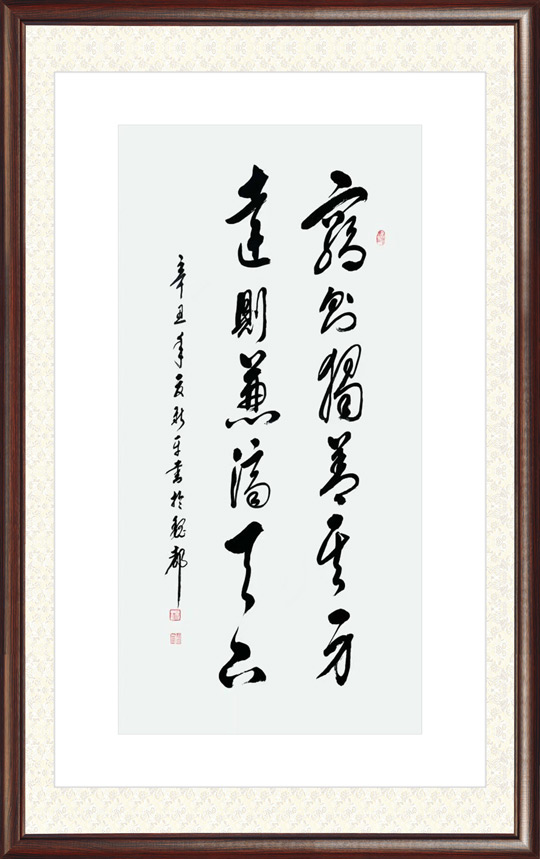 窮則獨善其身
達則兼濟天下
辛丑年夏新平書於魏都